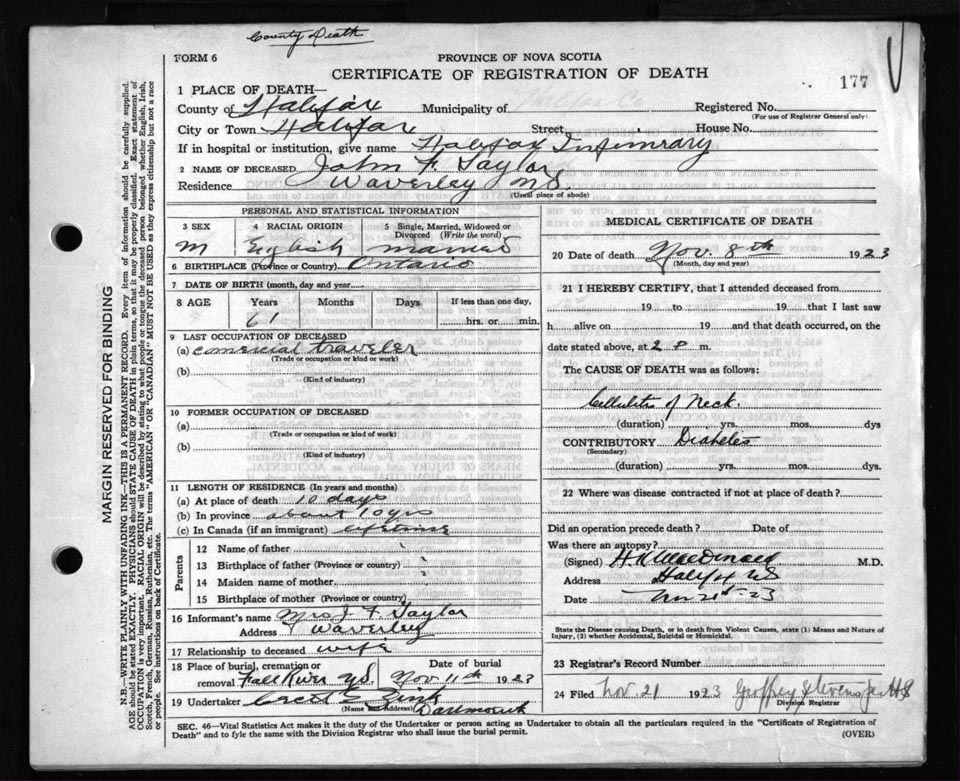 County Death
FORM 6
PROVINCE OF NOVA SCOTIA
CERTIFICATE OF REGISTRATION OF DEATH
177
1 PLACE OF DEATH—
County of Halifax Municipality of Registered No.
(For use of Registrar General only)
City or Town Halifax Street House No.
If in hospital or institution, give name Halifax Infirmary
2 NAME OF DECEASED John F. Taylor
Residence Waverley N.S.
(Usual place of abode)
PERSONAL AND STATISTICAL INFORMATION
3 SEX 4 RACIAL ORIGIN 5 Single, Married, Widowed or Divorced (Write the word)
M English married
6 BIRTHPLACE (Province or Country) Ontario
7 DATE OF BIRTH (month, day and year)
8 AGE Years Months Days If less than one day,
61 hrs. or min.
9 LAST OCCUPATION OF DECEASED
(a) comercial traveler
(Trade or occupation or kind or work)
(b)
(Kind of industry)
10 FORMER OCCUPATION OF DECEASED
(a)
(Trade or occupation or kind of work)
(b)
(Kind of industry)
11 LENGTH OF RESIDENCE (In years and months)
(a) At place of death 10 days
(b) In province about 10 yrs
(c) In Canada (if an immigrant) lifetime
Parents
12 Name of father
13 Birthplace of father (Province or country)
14 Maiden name of mother
15 Birthplace of mother (Province or country)
16 Informant's name Mrs J. F. Taylor
Address Waverley
17 Relationship to deceased wife
18 Place of burial, cremation or removal Fall River N.S. Date of burial Nov 11th 1923
19 Undertaker Zink
(Name and Address) Dartmouth
MEDICAL CERTIFICATE OF DEATH
20 Date of death Nov. 8th 1923
(Month, day and year)
21 I HEREBY CERTIFY, that I attended deceased from
19 to 19 that I last saw
h alive on 19 and that death occurred, on the
date stated above, at 2 P m.
The CAUSE OF DEATH was as follows:
Cellulitis of Neck.
(duration) yrs. mos. dys
CONTRIBUTORY Diabetes
(Secondary)
(duration) yrs. mos. dys.
22 Where was disease contracted if not at place of death?
Did an operation precede death? Date of
Was there an autopsy?
(Signed) MacDonald M.D.
Address Halifax NS
Date Nov 21st-23
State the Disease causing Death, or in death from Violent Causes, state (1) Means and Nature of
Injury, (2) whether Accidental, Suicidal or Homicidal.
23 Registrar's Record Number
24 Filed Nov 21 1923 Geoffrey Stevens
Division Registrar
SEC. 46—Vital Statistics Act makes it the duty of the Undertaker or person acting as Undertaker to obtain all the particulars required in the "Certificate of Registration of
Death" and to fyle the same with the Division Registrar who shall issue the burial permit.
(OVER)
MARGIN RESERVED FOR BINDING
N.B.—WRITE PLAINLY WITH UNFADING INK—THIS IS A PERMANENT RECORD. Every item of information should be carefully supplied.
AGE should be stated EXACTLY. PHYSICIANS should STATE CAUSE OF DEATH in plain terms, so that it may be properly classified. Exact statement of
OCCUPATION is very important. RACIAL ORIGIN will be described by stating to what people or tongue the deceased person belonged whether English, Irish,
Scotch, French, German, Russian, Ruthenian, etc. The terms "AMERICAN" OR "CANADIAN" MUST NOT BE USED as they express citizenship but not a race
or people. See instructions on back of Certificate.